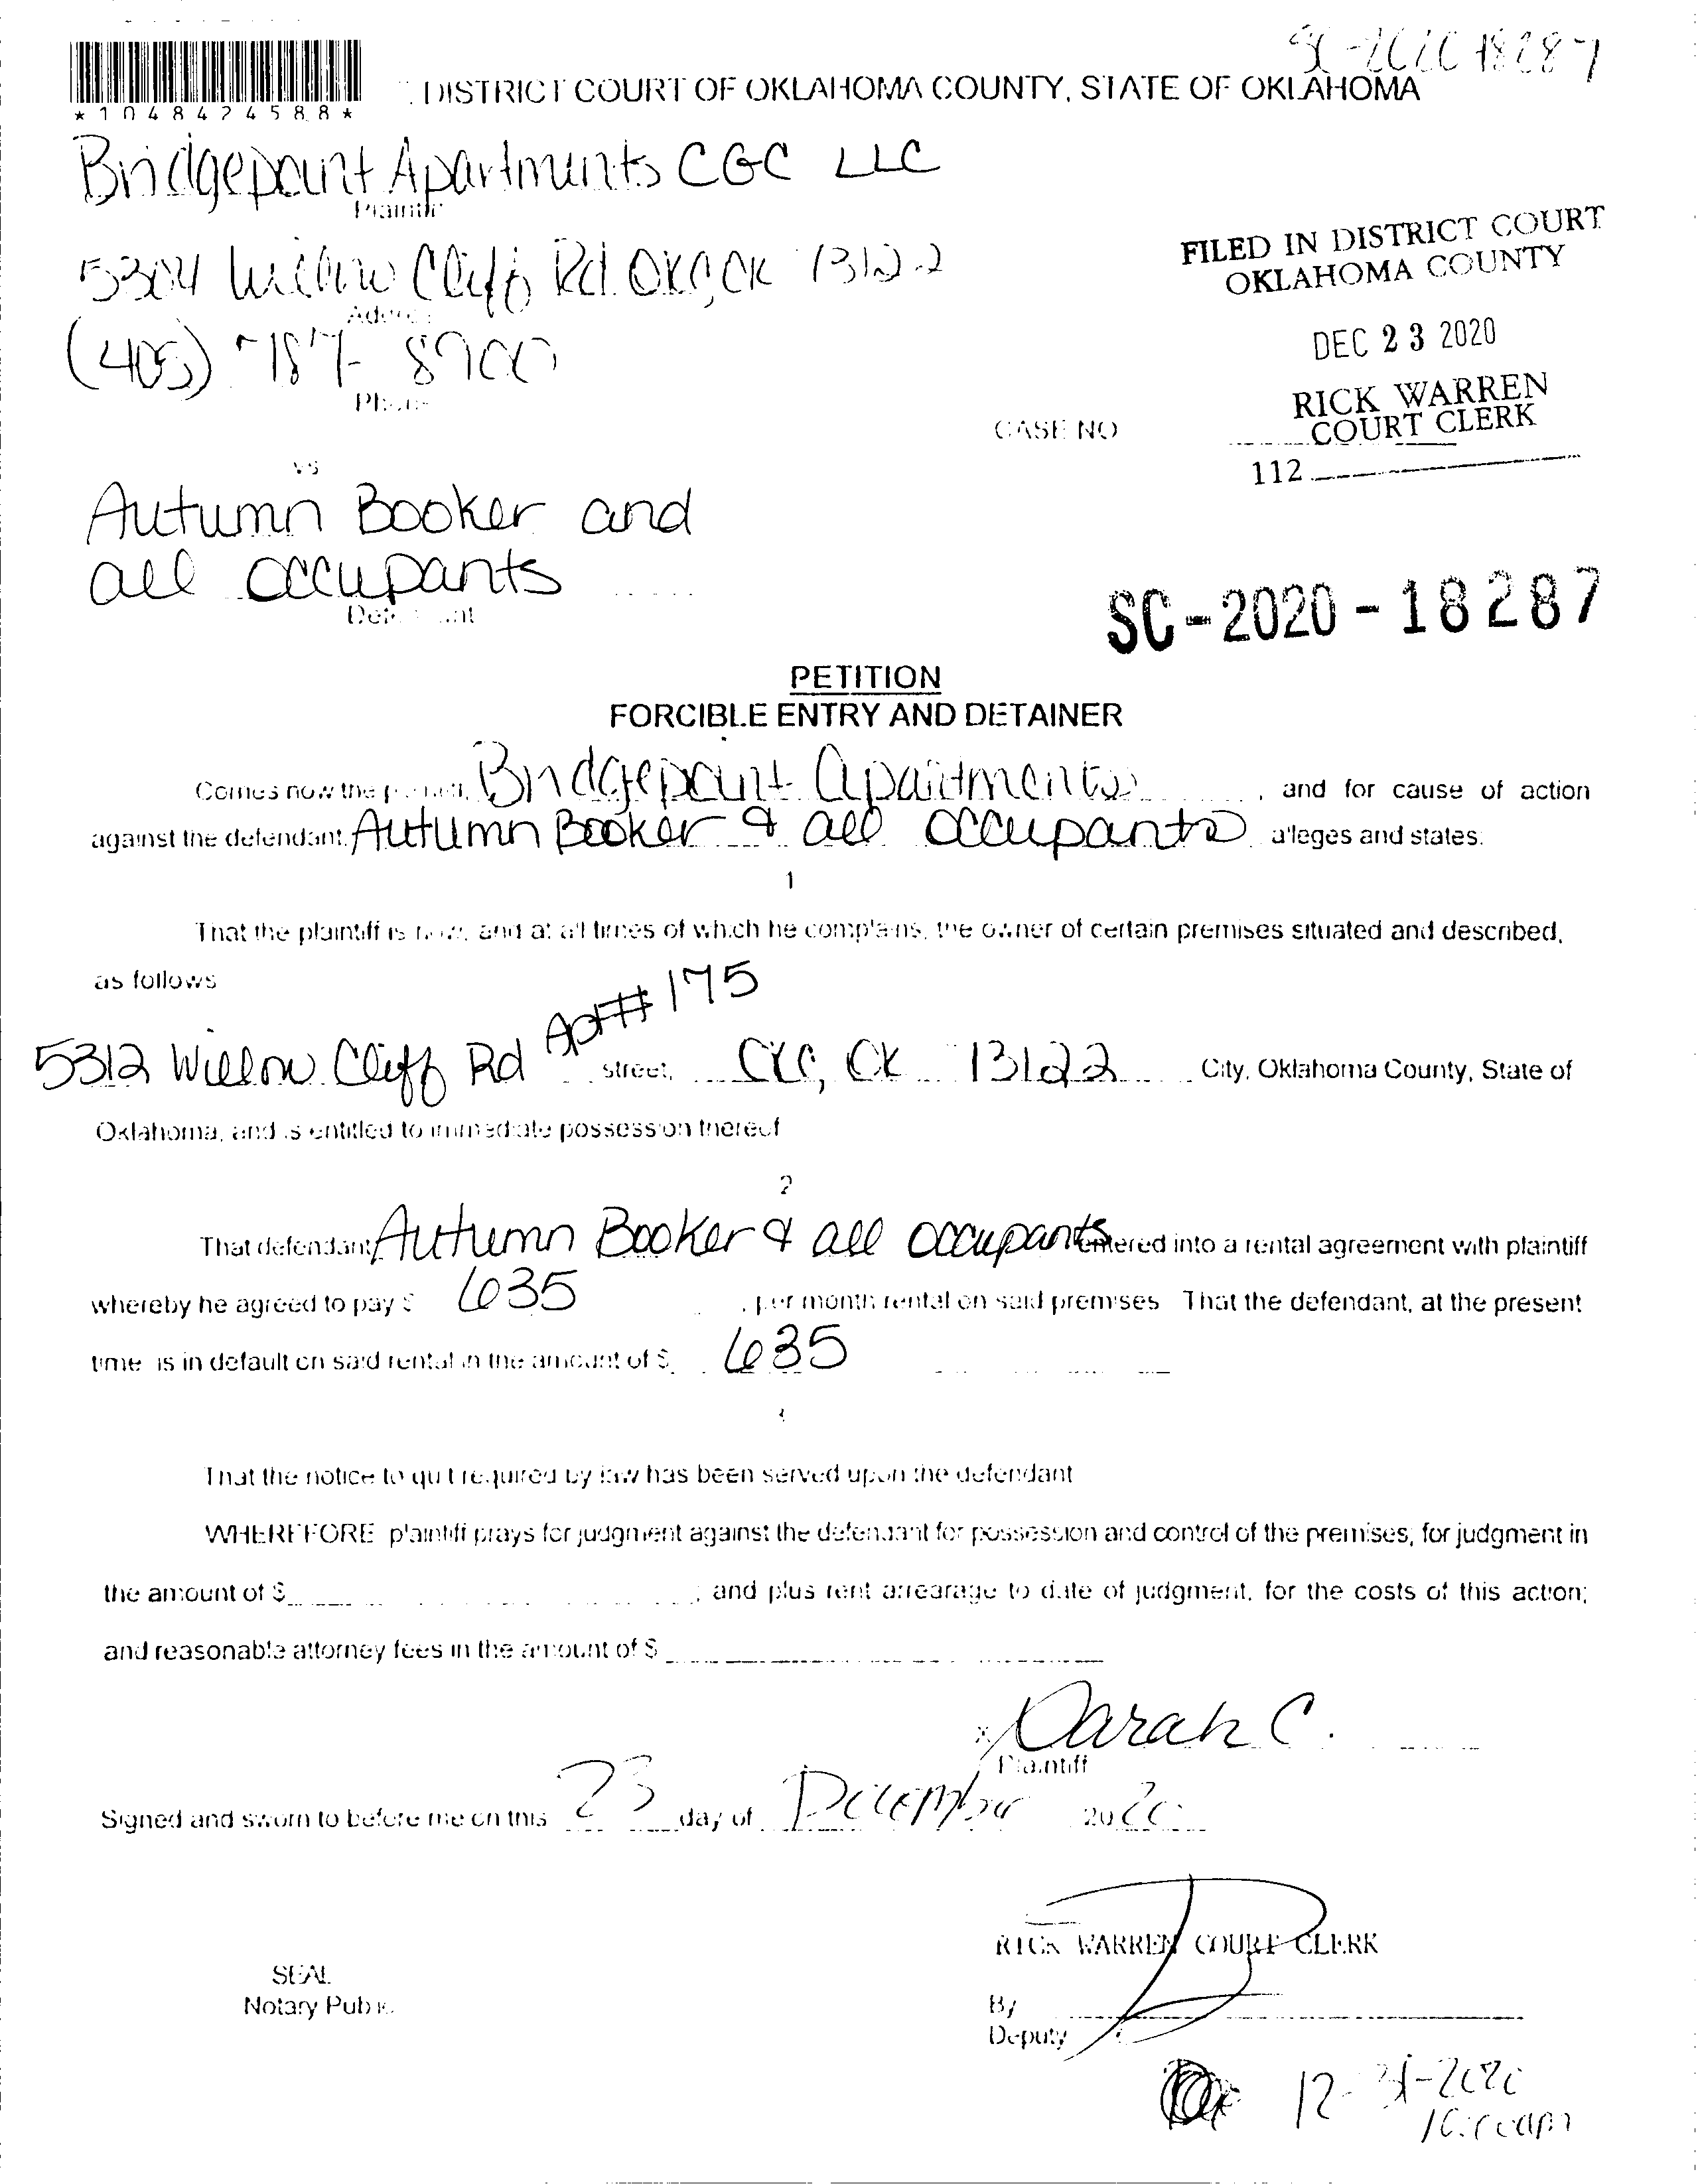 SC-2020 18287
*1048424588*
DISTRICT COURT OF OKLAHOMA COUNTY, STATE OF OKLAHOMA
Bridgepoint Apartments CGC LLC
Plaintiff
5304 Willow Cliff Rd OKC, OK 73122
Address
FILED IN DISTRICT COURT
OKLAHOMA COUNTY
(405) 787-8900
Phone
DEC 23 2020
RICK WARREN
COURT CLERK
CASE NO
112
vs
Autumn Booker and
all occupants
Defendant
SC-2020-18287
PETITION
FORCIBLE ENTRY AND DETAINER
Comes now the plaintiff, Bridgepoint Apartments, and for cause of action
against the defendant, Autumn Booker & all occupants alleges and states:
1
That the plaintiff is now, and at all times of which he complains, the owner of certain premises situated and described,
as follows
5312 Willow Cliff Rd Apt# 175 street, OKC, OK 73122 City, Oklahoma County, State of
Oklahoma, and is entitled to immediate possession thereof
2
That defendant Autumn Booker & all occupants entered into a rental agreement with plaintiff
whereby he agreed to pay $ 635, per month rental on said premises That the defendant, at the present
time is in default on said rental in the amount of $ 635
3
That the notice to quit required by law has been served upon the defendant
WHEREFORE plaintiff prays for judgment against the defendant for possession and control of the premises, for judgment in
the amount of $ ; and plus rent arrearage to date of judgment, for the costs of this action;
and reasonable attorney fees in the amount of $
x Sarah C.
Plaintiff
Signed and sworn to before me on this 23 day of December 2020
RICK WARREN COURT CLERK
SEAL
Notary Public
By
Deputy
12-31-2020
10:00am